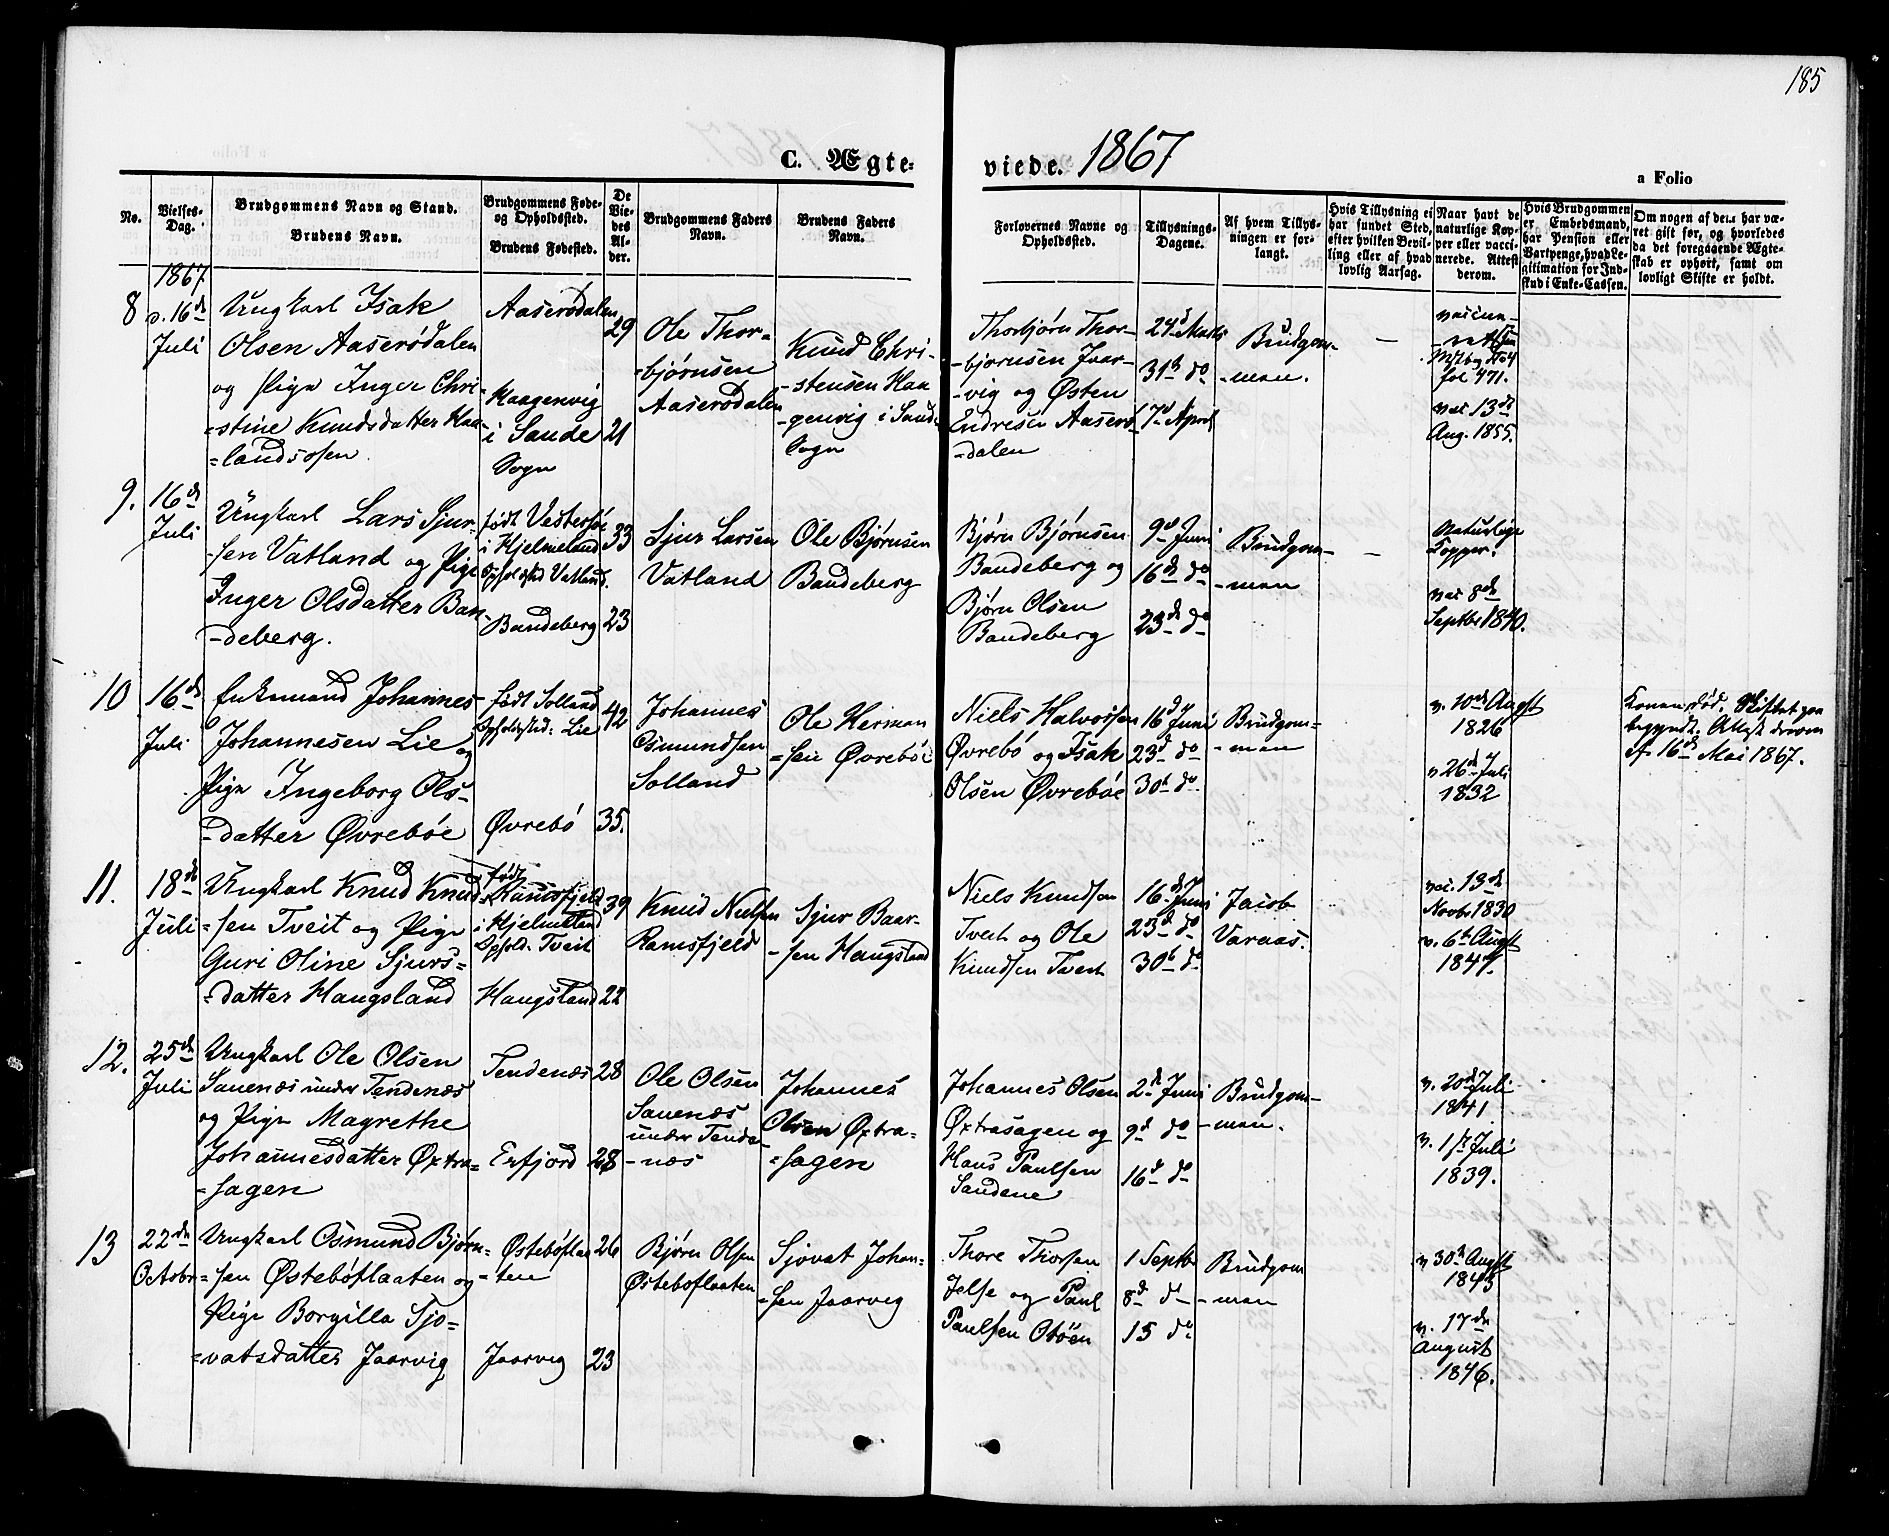 185
C. Ægte-
viede. 1867
a Folio
No.
Vielses-
Dag.
Brudgommens Navn og Stand.
Brudens Navn.
Brudgommens Føde-
og Opholdssted.
Brudens Fødested.
De
Vie-
des
Al-
der.
Brudgommens Faders
Navn.
Brudens Faders
Navn.
Forlovernes Navne og
Opholdssted.
Tillysnings-
Dagene.
Af hvem Tillys-
ningen er for-
langt.
Hvis Tillysning ei
har fundet Sted,
efter hvilken Bevil-
ling eller af hvad
lovlig Aarsag.
Naar havt de
naturlige Kop-
per eller vacci-
nerede. Attest
derom.
Hvis Brudgommen
er Embedsmand,
har Pension eller
Vartpenge, hvad Le-
gitimation for Ind-
skud i Enke-Cassen.
Om nogen af dem har væ-
ret gift før, og hvorledes
da det foregaaende Ægte-
skab er ophørt, samt om
lovligt Skifte er holdt.
1867.
8
d. 16de
Juli
Ungkarl Isak
Olsen Aaserødalen
og Pige Inger Chri-
=stine Knudsdatter Haa-
=landsosen.
Aaserødalen
Haagenvig
i Sande
Sogn
29
21
Ole Thor-
-bjørnsen
Aaserødalen
Knud Chri-
-stensen Haa
-genvig i Sand
Sogn
Thorbjørn Thor-
-bjørnsen Ivar-
-vig og Østen
Endresen Aaserø
-dalen
24d Marts
31te do
7de April
Brudgom-
-man.
—
fol 471.
vac 13de
Aug. 1855.
9.
16de
Juli
Ungkarl Lars Sjur-
-sen Vatland og Pige
Inger Olsdatter Ban-
-deberg.
født Vestersøe
i Hjelmeland
Opholdsted Vatland.
Bandeberg
33
23
Sjur Larsen
Vatland
Ole Bjørnsen
Bandeberg
Bjørn Bjørnsen
Bandeberg og
Bjørn Olsen
Bandeberg
9d Juni
16de do
23de do
Brudgom-
-man
—
Naturlige
Kopper.
vac 8de
Septbr 1840.
10
16de
Juli
Enkemand Johannes
Johannesen Lie og
Pige Ingeborg Ols-
-datter Øvrebøe
født Solland
Opholdsted: Lie
Øvrebö
42
35.
Johannes
Osmundsen
Solland
Ole Herman
=sen Øvrebøe
Niels Halvorsen
Øvrebö og Isak
Olsen Øvrebøe
16d Juni
23d do
30te do.
Brudgom-
-man
v. 10de Augst
1826
v 26de Juli
1832
Konen død. Skiftet paa
begyndt. Attest derom
af 16de Mai 1867.
11.
18de
Juli
Ungkarl Knud Knud
=sen Tveit og Pige
Guri Oline Sjurs=
-datter Haugsland
født
Ramsfjeld
i Hjelmeland
Ophold. Tveit
Haugsland
39
22
Knud Nielsen
Ramsfjeld
Sjur Baar-
-sen Haugsland
Niels Knudsen
Tveit og Ole
Knudsen Tveit
16de Juni
23de do
30te do
Jacob
Varaas.
vac. 13de
Novbr 1830
v. 6te Augst
1847.
12.
25de
Juli
Ungkarl Ole Olsen
Sauenæs under Tendenæs
og Pige Magrethe
Johannesdatter Øxtra=
=sagen
Tendenæs
Erfjord
28
28
Ole Olsen
Sauenæs
under Tende-
-næs
Johannes
Olsen Øxtra-
=sagen
Johannes Olsen
Øxtrasagen og
Hans Paulsen
Sandene
2de Juni
9d do
16de do
Brudgom-
-man.
v. 20de Juli
1841
v. 17 Juli
1839.
13
22de
Octobr
Ungkarl Osmund Bjørn-
=sen Østebøflaaten og
Pige Borgilla Sjo=
=vatsdatter Jaarvig
Østebøflaa
-ten
Jaarvig
26
23
Bjørn Olsen
Østebøflaaten
Sjovat Johan-
=sen Jaarvig
Thore Thorsen
Jelse og Paul
Paulsen Oböen
1 Septbr
8de do
15 do
Brudgom
-man
v 30te Augst
1843
v. 17de
August
1846.